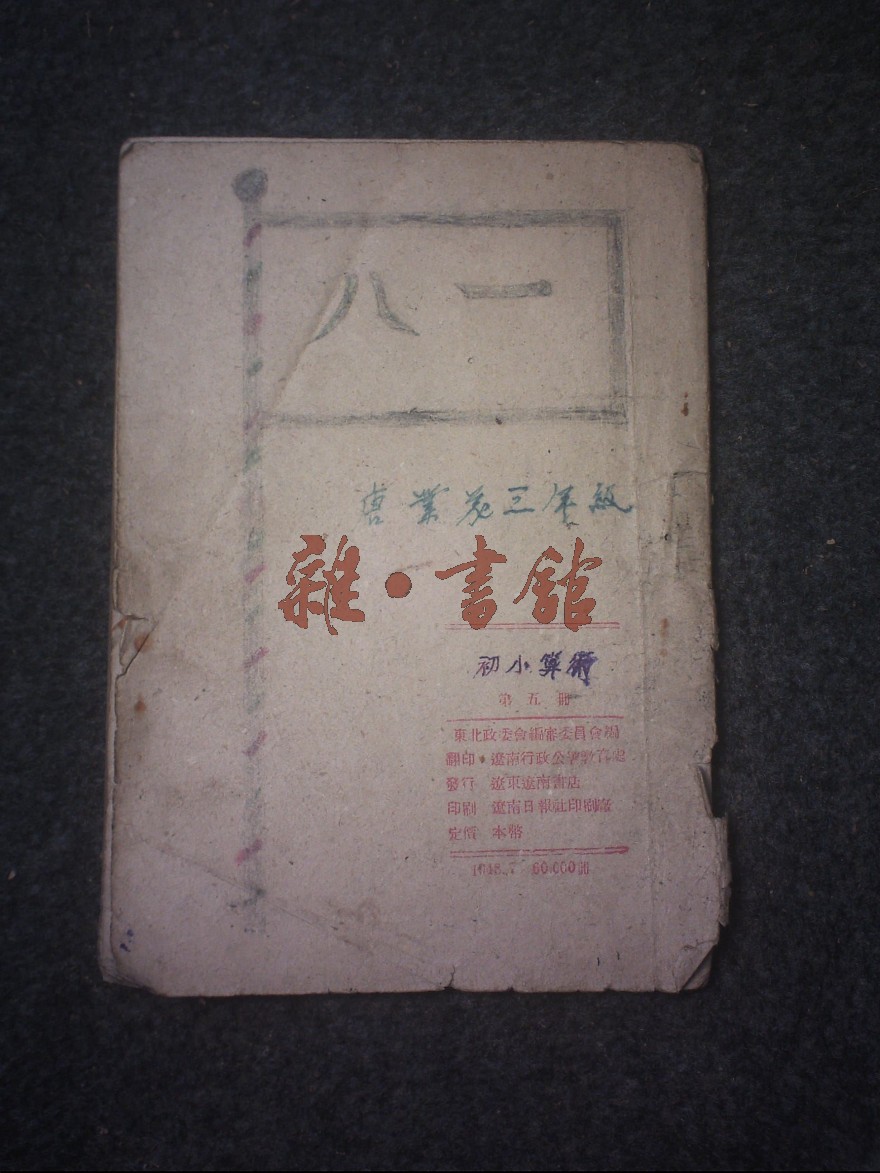 八一
業茂三年級
雜·書館
初小算術
第五冊
東北政委會編審委員會編
翻印 遼南行政公署教育處
發行 遼東遼南書店
印刷 遼南日報社印刷廠
定價 本幣
60,000冊